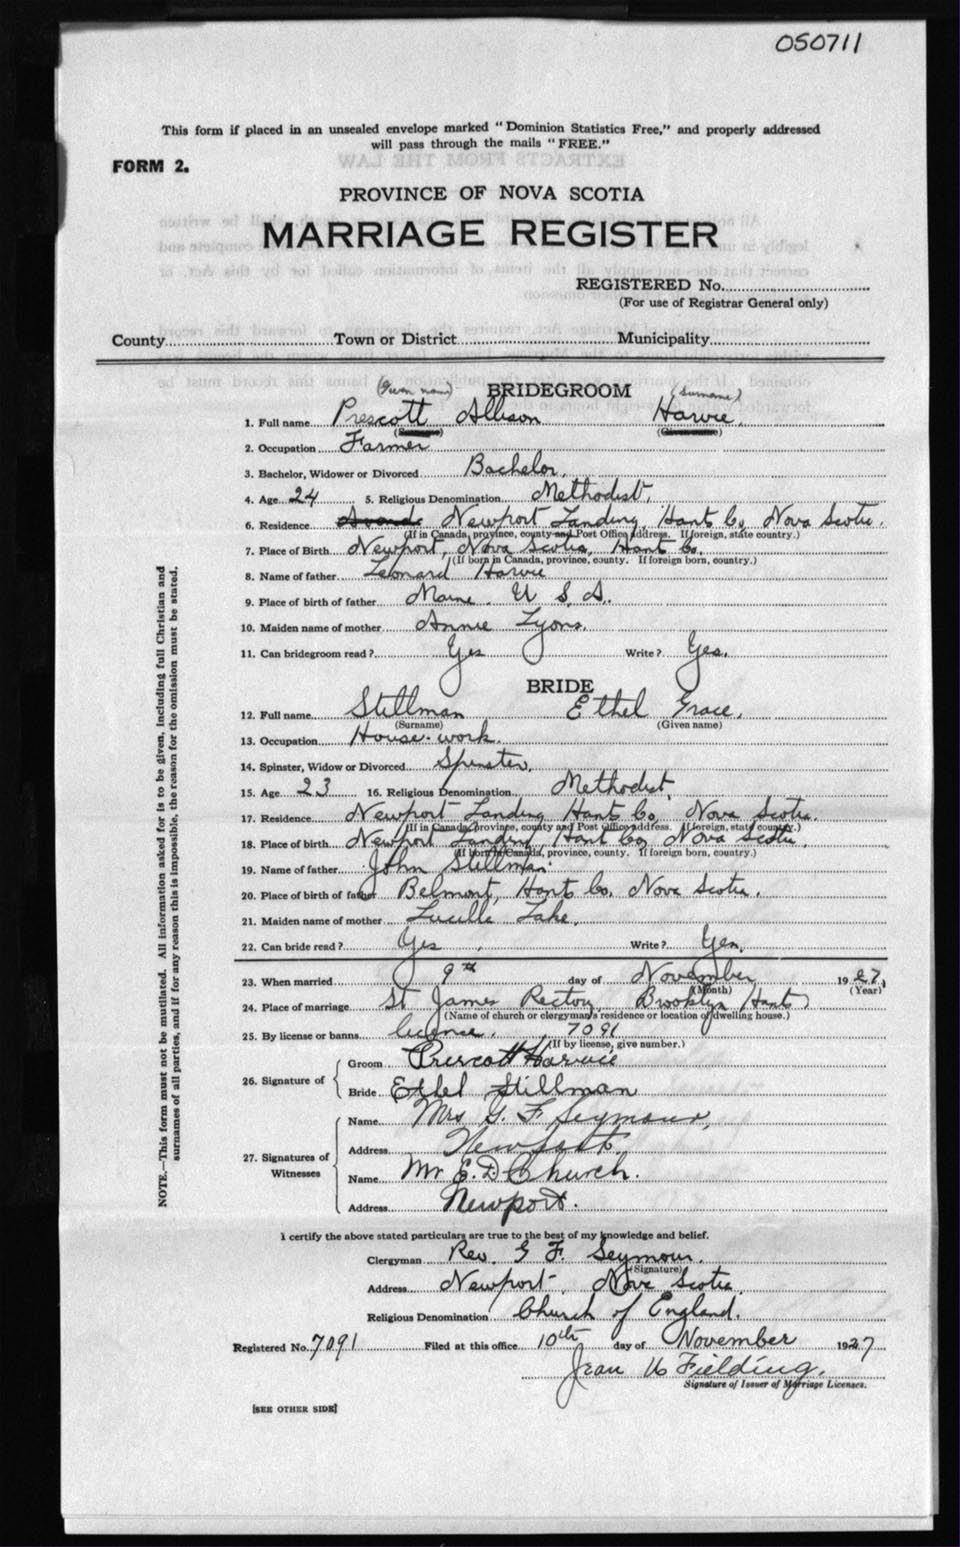 050711
This form if placed in an unsealed envelope marked "Dominion Statistics Free," and properly addressed
will pass through the mails "FREE."
FORM 2.
PROVINCE OF NOVA SCOTIA
MARRIAGE REGISTER
REGISTERED No.
(For use of Registrar General only)
County Town or District Municipality
(Given name) BRIDEGROOM (Surname)
1. Full name Prescott Allison Harvie.
2. Occupation Farmer
3. Bachelor, Widower or Divorced Bachelor.
4. Age 24 5. Religious Denomination Methodist.
6. Residence Newport Landing, Hants Co, Nova Scotia.
(If in Canada, province, county and Post Office address. If foreign, state country.)
7. Place of Birth Newport, Nova Scotia, Hants Co.
(If born in Canada, province, county. If foreign born, country.)
8. Name of father Leonard Harvie
9. Place of birth of father Maine. U. S. A.
10. Maiden name of mother Annie Lyons.
11. Can bridegroom read? Yes Write? Yes.
BRIDE
12. Full name Stillman Ethel Grace.
(Surname) (Given name)
13. Occupation House-work.
14. Spinster, Widow or Divorced Spinster.
15. Age 23 16. Religious Denomination Methodist.
17. Residence Newport Landing Hants Co, Nova Scotia.
(If in Canada, province, county and Post Office address. If foreign, state country.)
18. Place of birth Newport Landing, Hants Co, Nova Scotia.
(If born in Canada, province, county. If foreign born, country.)
19. Name of father John Stillman
20. Place of birth of father Belmont, Hants Co. Nova Scotia.
21. Maiden name of mother Lucille Lake.
22. Can bride read? Yes, Write? Yes.
23. When married 9th day of November 1927
(Month) (Year)
24. Place of marriage St James Rectory Brooklyn Hants
(Name of church or clergyman's residence or location of dwelling house.)
25. By license or banns license. 7091
(If by license, give number.)
26. Signature of Groom Prescott Harvie
Bride Ethel Stillman
27. Signatures of Witnesses Name Mrs G. F. Seymour,
Address Newport.
Name Mr E. D. Church.
Address Newport.
I certify the above stated particulars are true to the best of my knowledge and belief.
Clergyman Rev. G F. Seymour.
(Signature)
Address Newport, Nova Scotia
Religious Denomination Church of England.
Registered No. 7091 Filed at this office 10th day of November 1927
Jean Fielding.
Signature of Issuer of Marriage Licenses.
[SEE OTHER SIDE]
NOTE.—This form must not be mutilated. All information asked for is to be given, including full Christian and
surnames of all parties, and if for any reason this is impossible, the reason for the omission must be stated.